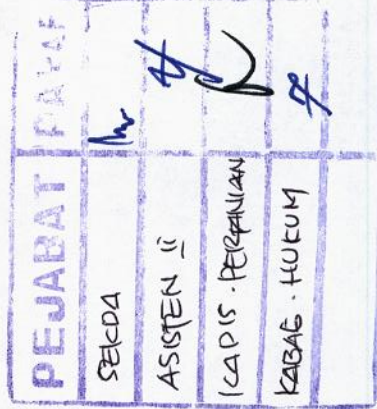 PEJABAT PARAF
SEKDA
ASISTEN II
KADIS . PERTANIAN
KABAG . HUKUM